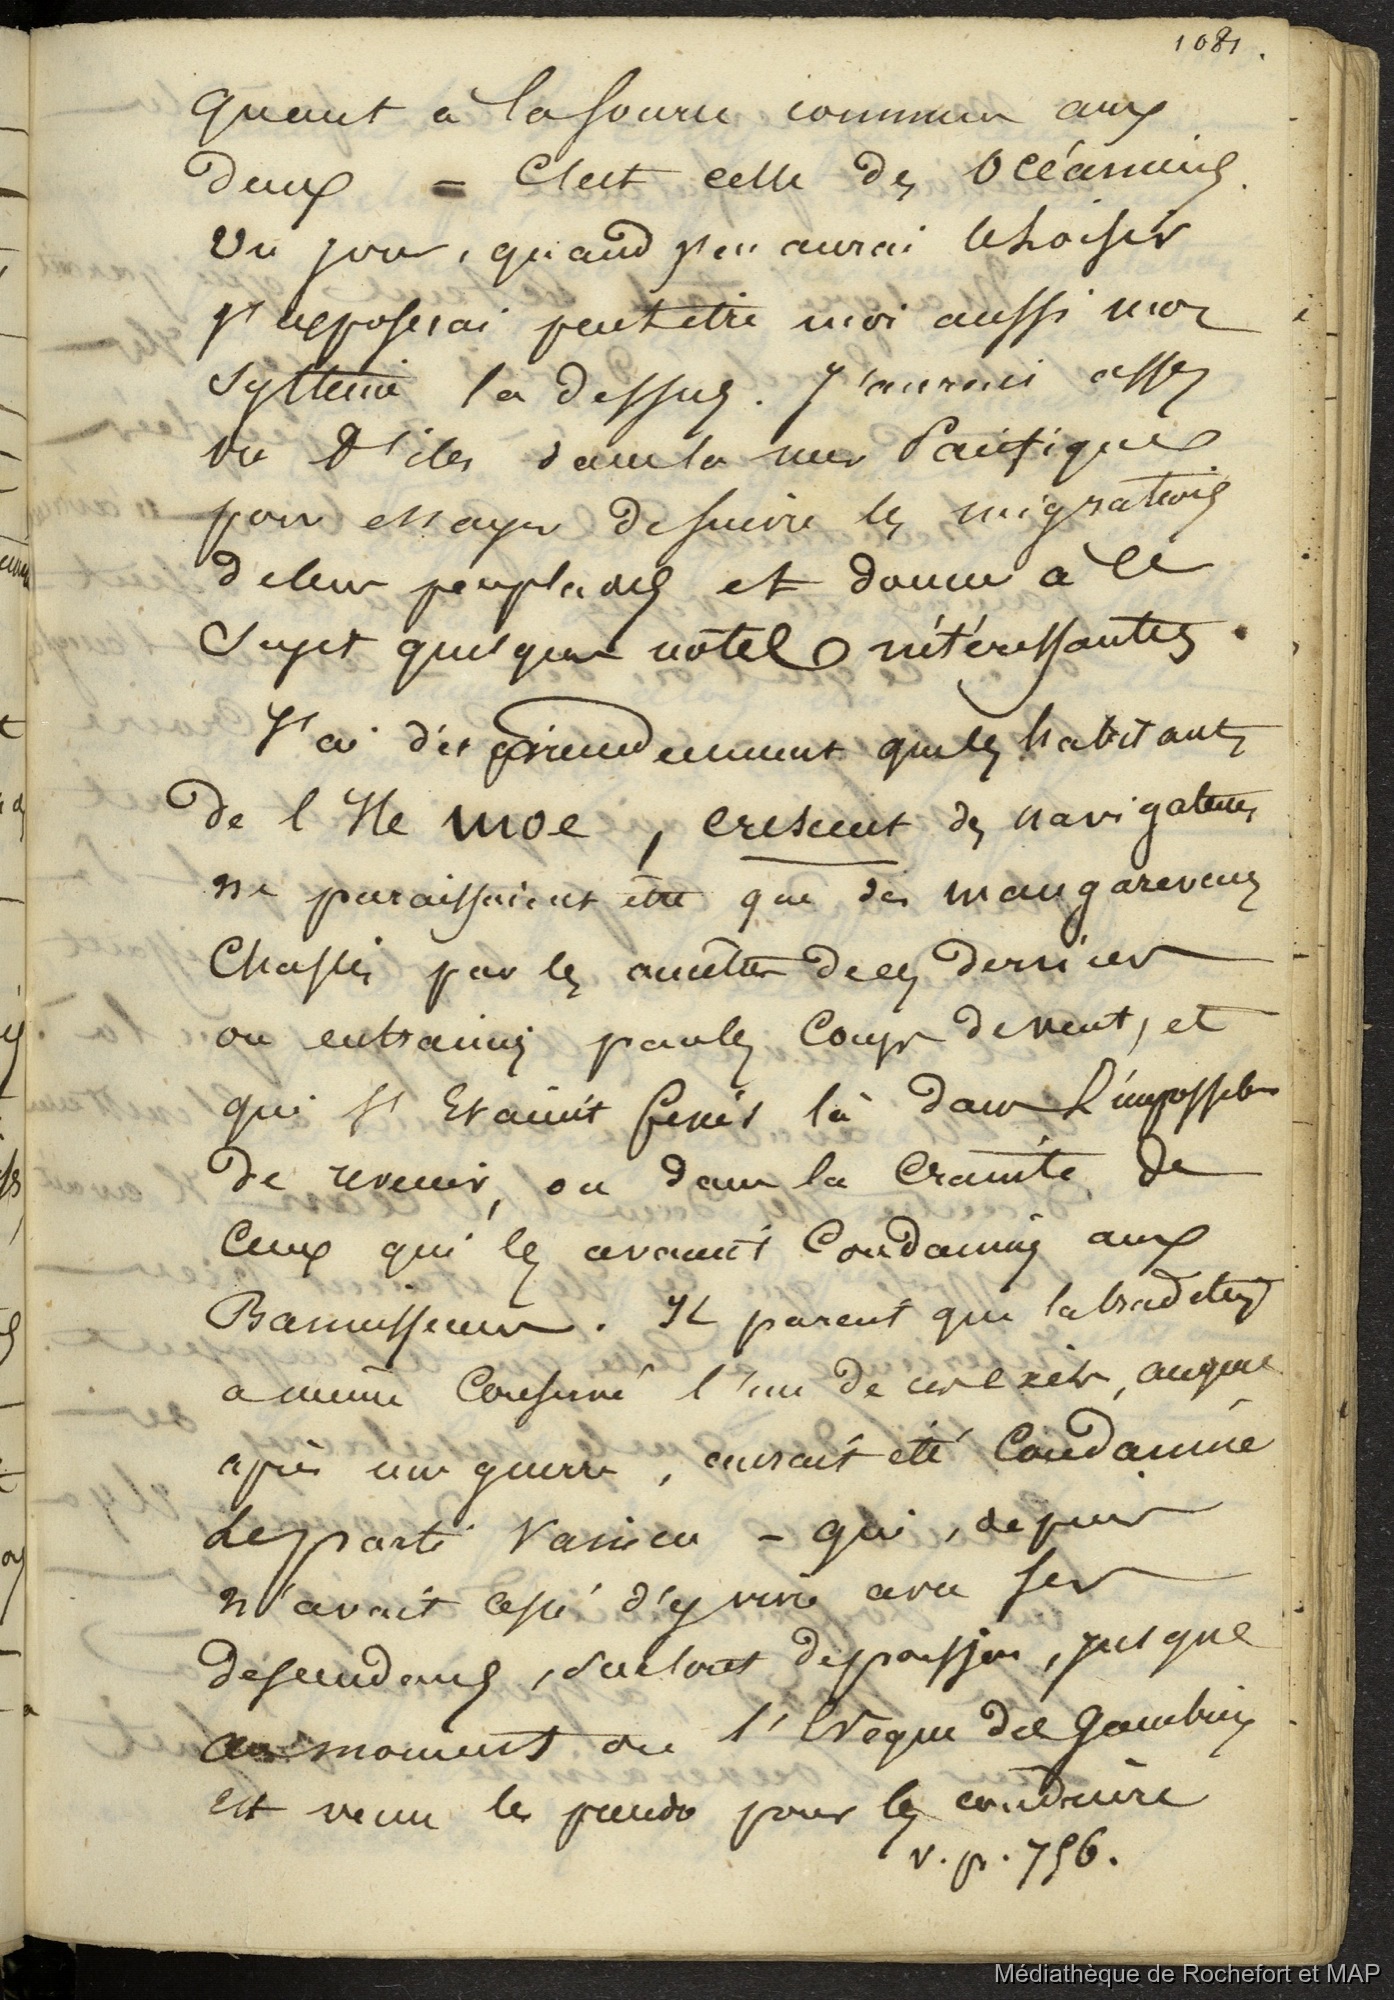 1081.
quant à la source commune aux
deux = C'est celle des Océaniens.
Un jour, quand j'en aurai le loisir
j'exposerai peut etre moi aussi mon
systeme la dessus. J'aurai assez
vu d'iles dans la mer Pacifique
pour essayer de suivre les migrations
de leur peuplades et donner à ce
sujet quelques notes intéressantes.
J'ai dit précédemment que les habitants
de l'Ile moe, crescent des navigateurs
ne paraissaient être que des mangareviens
Chassés par les ancêtres de ces derniers
ou entrainés par les Coups de vent, et
qui s'etaient fixés là dans l'impossib
de revenir, ou dans la Crainte de
Ceux qui les avaient Condamnés aux
Bannissement. Il parait que la tradition
a même Conservé l'un de ces exils, auquel
après une guerre, aurait été Condamné
le parti Vaincu - qui, depuis
n'avait cessé d'y vivre avec ses
descendans, surtout de poisson, jusque
au moment ou l'Eveque des Gambier
est venu les prendre pour les conduire
v. p. 756.
Médiathèque de Rochefort et MAP